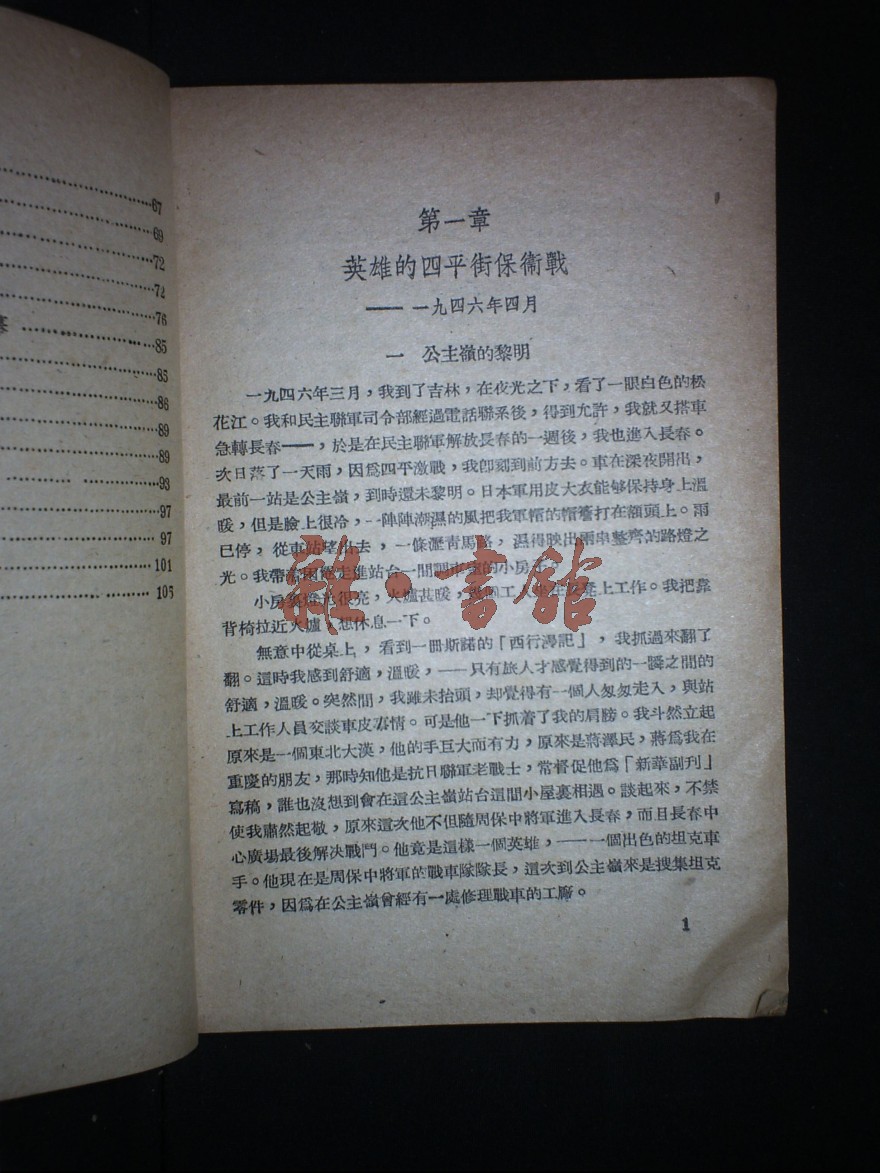 67
69
72
72
76
85
85
86
89
89
93
97
97
101
105
第一章
英雄的四平街保衛戰
—— 一九四六年四月
一 公主嶺的黎明
一九四六年三月，我到了吉林，在夜光之下，看了一眼白色的松
花江。我和民主聯軍司令部經過電話聯系後，得到允許，我就又搭車
急轉長春——，於是在民主聯軍解放長春的一週後，我也進入長春。
次日落了一天雨，因爲四平激戰，我卽刻到前方去。車在深夜開出，
最前一站是公主嶺，到時還未黎明。日本軍用皮大衣能够保持身上溫
暖，但是臉上很冷，一陣陣潮濕的風把我軍帽的帽簷打在額頭上。雨
已停，從車站望出去，一條瀝青馬路，濕得映出兩串整齊的路燈之
光。我帶着困倦走進站台一間調車室的小房子。
小房裏燈光很亮，火爐甚暖，工人坐在上工作。我把靠
背椅拉近火爐，想休息一下。
無意中從桌上，看到一冊斯諾的「西行漫記」，我抓過來翻了
翻。這時我感到舒適，溫暖，——只有旅人才感覺得到的一瞬之間的
舒適，溫暖。突然間，我雖未抬頭，却覺得有一個人匆匆走入，與站
上工作人員交談車皮事情。可是他一下抓着了我的肩膀。我斗然立起
原來是一個東北大漢，他的手巨大而有力，原來是蔣澤民，蔣爲我在
重慶的朋友，那時知他是抗日聯軍老戰士，常督促他爲「新華副刊」
寫稿，誰也沒想到會在這公主嶺站台這間小屋裏相遇。談起來，不禁
使我肅然起敬，原來這次他不但隨周保中將軍進入長春，而且長春中
心廣場最後解決戰鬥。他竟是這樣一個英雄，——一個出色的坦克車
手。他現在是周保中將軍的戰車隊隊長，這次到公主嶺來是搜集坦克
零件，因爲在公主嶺曾經有一處修理戰車的工廠。
1
雜·書館